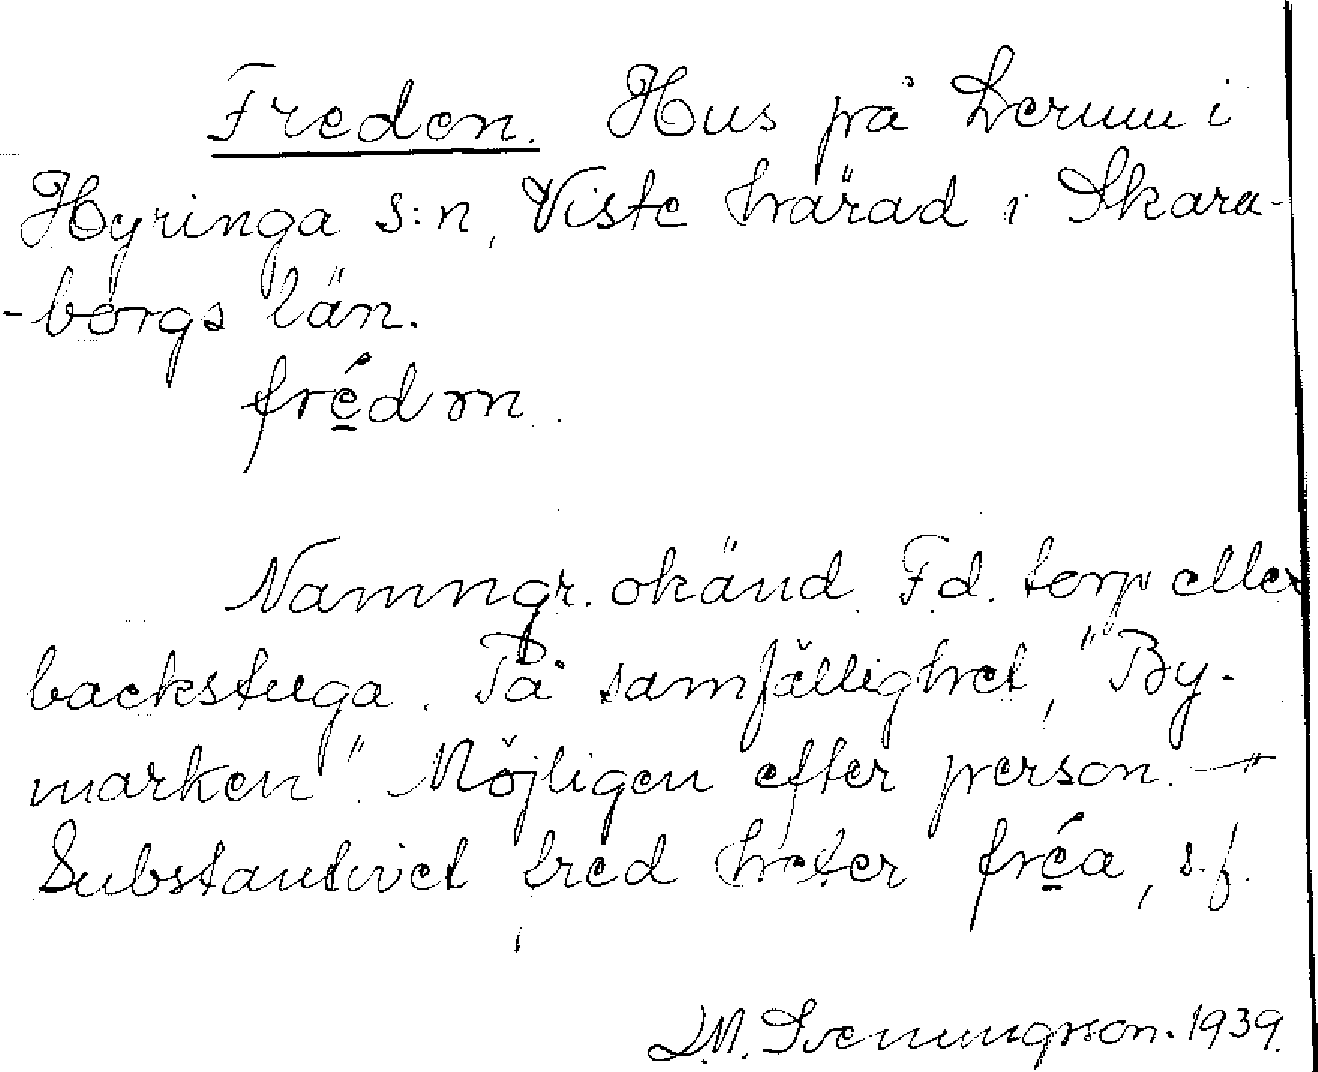 Freden. Hus på Lerum i
Hyringa s:n, Viste härad i Skara-
-borgs län.
frédən.
Namngr. okänd. F.d. torp eller
backstuga. På samfällighet, "By-
marken". Möjligen efter person. →
Substantivet fred heter fréa, s.f.
J.M. Svenungsson. 1939.